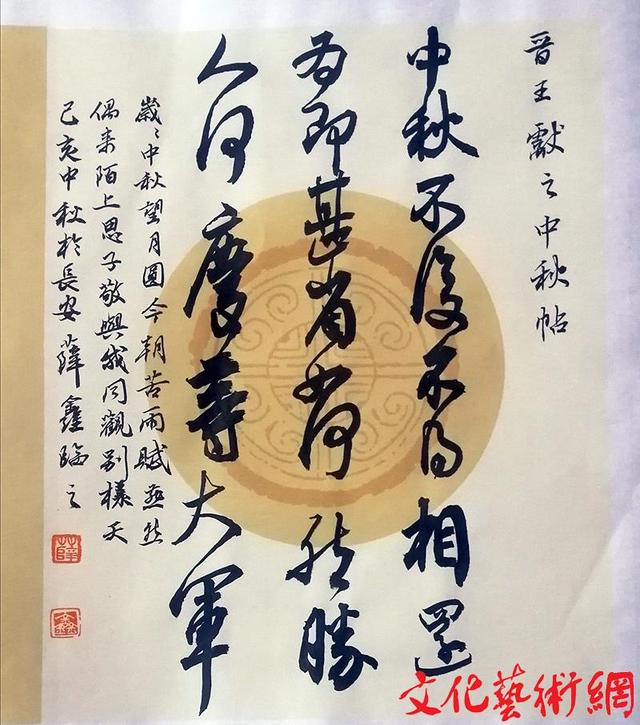 晉王獻之中秋帖
中秋不復不得相還
為即甚省如何然勝
人何慶等大軍
歲〻中秋望月圓今朝苦雨賦無然
偶來陌上思子敬與我同觀別樣天
己亥中秋於長安薛鑫臨之
薛
鑫
文化藝術網